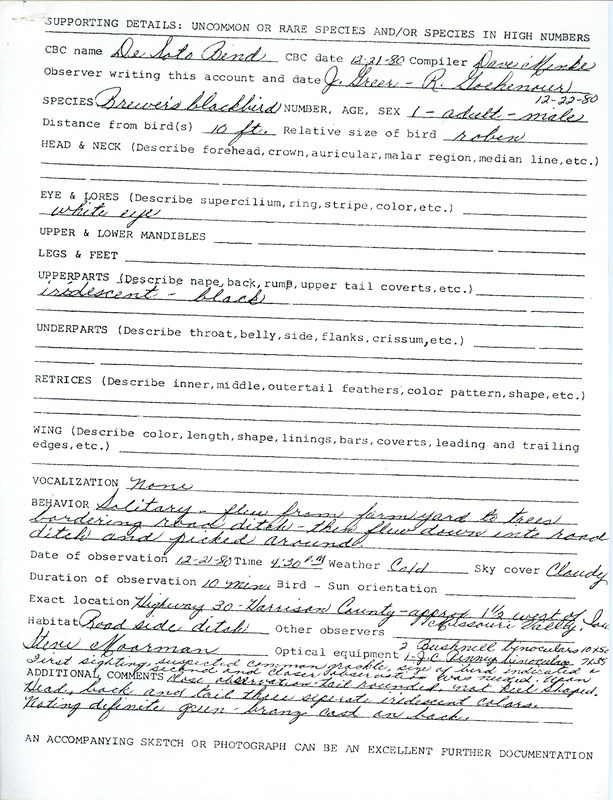 SUPPORTING DETAILS: UNCOMMON OR RARE SPECIES AND/OR SPECIES IN HIGH NUMBERS
CBC name De Soto Bend CBC date 12-21-80 Compiler Dave Menke
Observer writing this account and date J. Greer - R. Gochenour
12-22-80
SPECIES Brewer's blackbird NUMBER, AGE, SEX 1 - adult - male
Distance from bird(s) 10 ft. Relative size of bird robin
HEAD & NECK (Describe forehead, crown, auricular, malar region, median line, etc.)
EYE & LORES (Describe supercilium, ring, stripe, color, etc.)
white eye
UPPER & LOWER MANDIBLES
LEGS & FEET
UPPERPARTS (Describe nape, back, rump, upper tail coverts, etc.)
iridescent - black
UNDERPARTS (Describe throat, belly, side, flanks, crissum, etc.)
RETRICES (Describe inner, middle, outertail feathers, color pattern, shape, etc.)
WING (Describe color, length, shape, linings, bars, coverts, leading and trailing
edges, etc.)
VOCALIZATION None
BEHAVIOR Solitary - flew from farm yard to trees
bordering road ditch - then flew down into road
ditch and picked around.
Date of observation 12-21-80 Time 4:30 PM Weather Cold Sky cover Cloudy
Duration of observation 10 min. Bird - Sun orientation
Exact location Highway 30 - Harrison County - approx 1½ west of
Missouri Valley, Iow
Habitat Road side ditch Other observers
Steve Moorman Optical equipment 2 Bushnell binoculars 10x50
1-J.C. Penney binoculars 7x35
First sighting suspected common grackle, size of bird indicated a
second and closer observation was needed. Upon
ADDITIONAL COMMENTS close observation tail rounded, not keel shaped.
Head, back and tail three seperate iridescent colors.
Noting definite green-bronz cast on back.
AN ACCOMPANYING SKETCH OR PHOTOGRAPH CAN BE AN EXCELLENT FURTHER DOCUMENTATION